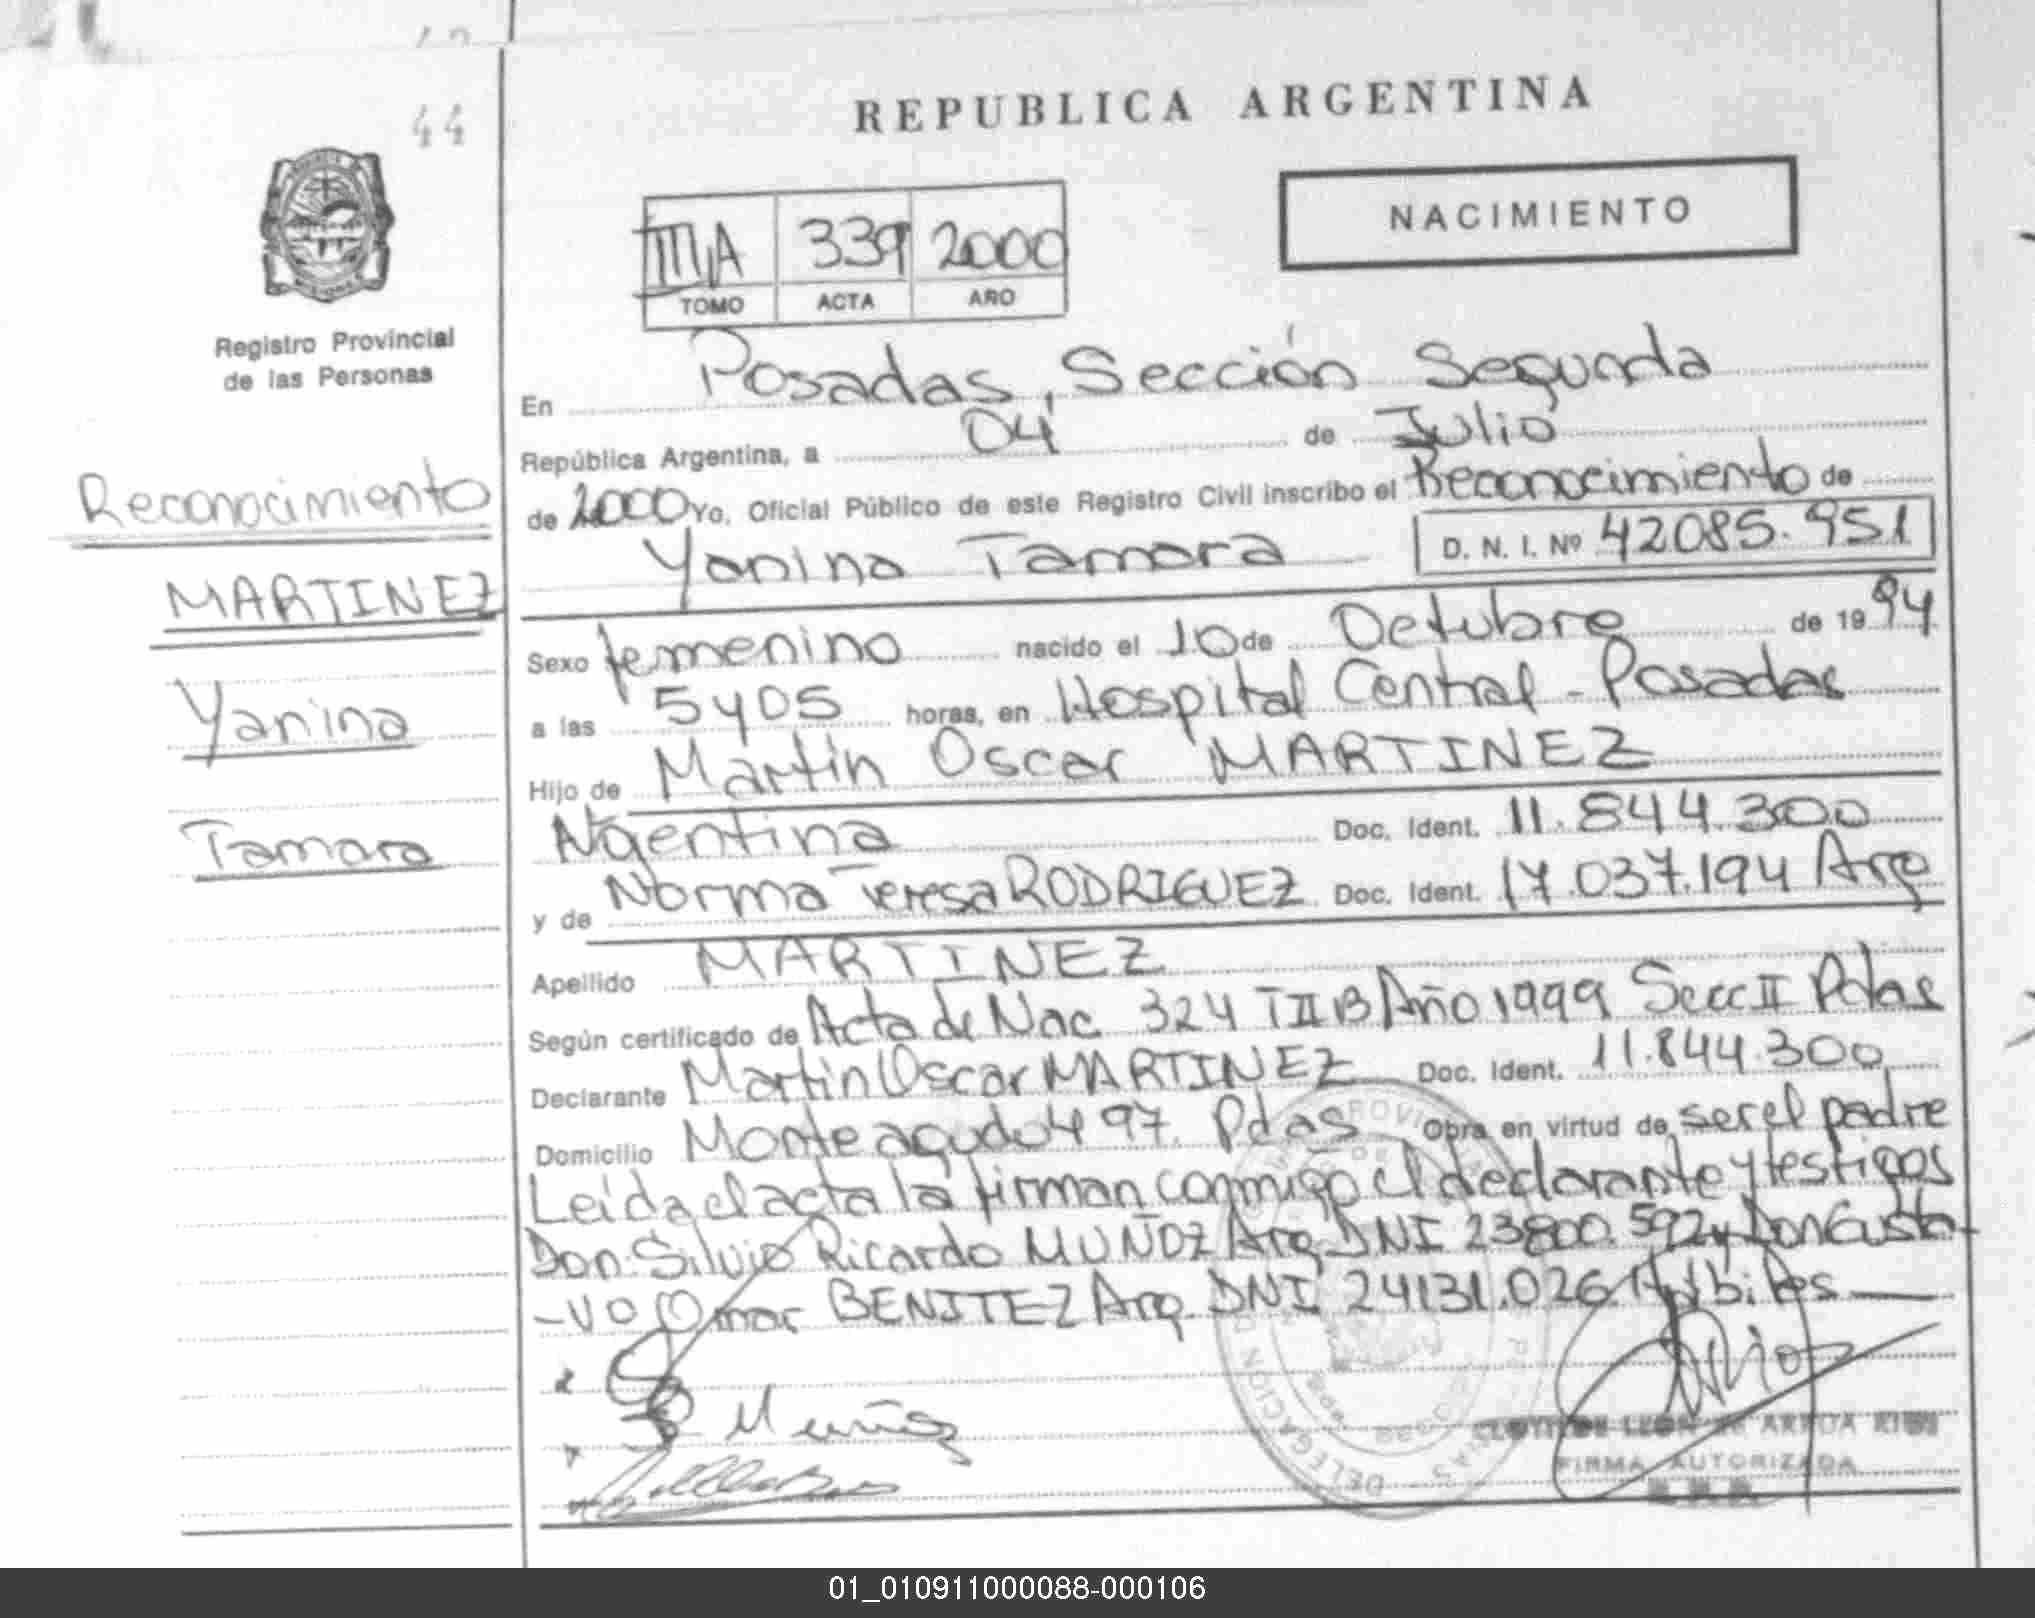 44
REPUBLICA ARGENTINA
NACIMIENTO
III A 339 2000
TOMO ACTA AÑO
Registro Provincial
de las Personas
Reconocimiento
MARTINEZ
Yanina
Tamara
En Posadas, Sección Segunda
República Argentina, a 04 de Julio
de 2000 Yo, Oficial Público de este Registro Civil inscribo el Reconocimiento de
Yanina Tamara D. N. I. Nº 42085.951
Sexo femenino nacido el 10 de Octubre de 1994
a las 5y05 horas, en Hospital Central - Posadas
Hijo de Martin Oscar MARTINEZ
Argentina Doc. Ident. 11.844.300
y de Norma Teresa RODRIGUEZ Doc. Ident. 17.037.194 Arg
Apellido MARTINEZ
Según certificado de Acta de Nac 324 T II B Año 1999 Secc II Pdas
Declarante Martin Oscar MARTINEZ Doc. Ident. 11.844.300
Domicilio Monteagudo 497 Pdas Obra en virtud de ser el padre
Leida el acta la firman conmigo el declarante y testigos
Don Silvio Ricardo MUÑOZ Arg DNI 23800.592 y Don Gusta
-vo Omar BENITEZ Arg. DNI 24131.026 Hábiles
Muñoz
CLOTILDE LEON DE ARRUA
FIRMA AUTORIZADA
DELEGACION
01_010911000088-000106